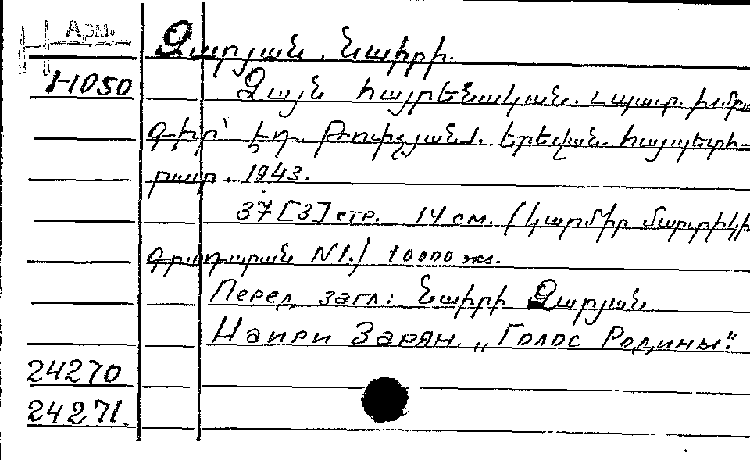 Арм.
Զարյան Նաիրի.
1-1050
Ձայն հայրենական. Հավաք. խմբա-
գիր՝ Եղ. Թռուչյան. Երևան. Հայպետհ-
րատ. 1943.
37 [3] стр. 14 см. (Կարմիր մարտիկի
գրադարան N1.) 10000 экз.
Перед загл: Նաիրի Զարյան
Наири Зарян „Голос Родины".
24270
24271.